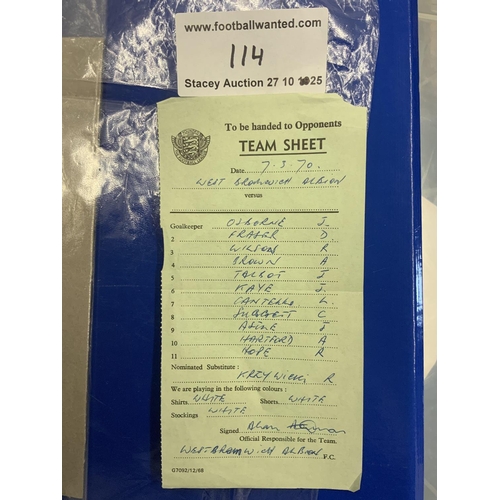 www.footballwanted.com
114
Stacey Auction 27 10 25
To be handed to Opponents
TEAM SHEET
Date 7.3.70.
WEST BROMWICH ALBION
versus
Goalkeeper OSBORNE J.
2 FRASER D
3 WILSON R
4 BROWN A
5 TALBOT J
6 KAYE J.
7 CANTELLO L.
8 SUGGETT C
9 ASTLE J
10 HARTFORD A
11 HOPE R
Nominated Substitute :
KRZYWICKI R
We are playing in the following colours :
Shirts WHITE Shorts WHITE
Stockings WHITE
Signed Alan
Official Responsible for the Team.
WEST BROMWICH ALBION F.C.
G7092/12/68